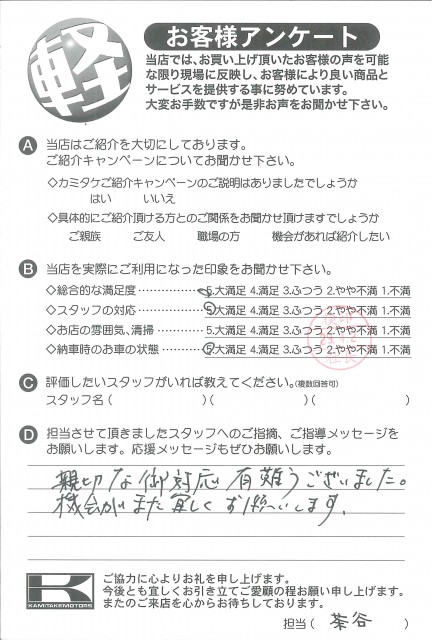 軽
お客様アンケート
当店では、お買い上げ頂いたお客様の声を可能
な限り現場に反映し、お客様により良い商品と
サービスを提供する事に努めています。
大変お手数ですが是非お声をお聞かせ下さい。
A 当店はご紹介を大切にしております。
ご紹介キャンペーンについてお聞かせ下さい。
◇カミタケご紹介キャンペーンのご説明はありましたでしょうか
はい いいえ
◇具体的にご紹介頂ける方とのご関係をお聞かせ頂けますでしょうか
ご親族 ご友人 職場の方 機会があれば紹介したい
B 当店を実際にご利用になった印象をお聞かせ下さい。
◇総合的な満足度 ……………… 5.大満足 4.満足 3.ふつう 2.やや不満 1.不満
◇スタッフの対応 ……………… 5.大満足 4.満足 3.ふつう 2.やや不満 1.不満
◇お店の雰囲気、清掃 ………… 5.大満足 4.満足 3.ふつう 2.やや不満 1.不満
◇納車時のお車の状態 ………… 5.大満足 4.満足 3.ふつう 2.やや不満 1.不満
C 評価したいスタッフがいれば教えてください。(複数回答可)
スタッフ名 ( )( )( )
D 担当させて頂きましたスタッフへのご指摘、ご指導メッセージを
お願いします。応援メッセージもぜひお願いします。
親切な御対応有難うございました。
機会がまた宜しくお願いします。
K
KAMITAKE MOTORS
ご協力に心よりお礼を申し上げます。
今後とも宜しくお引き立てご愛顧の程お願い申し上げます。
またのご来店を心からお待ちしております。
担当 ( 茶谷 )